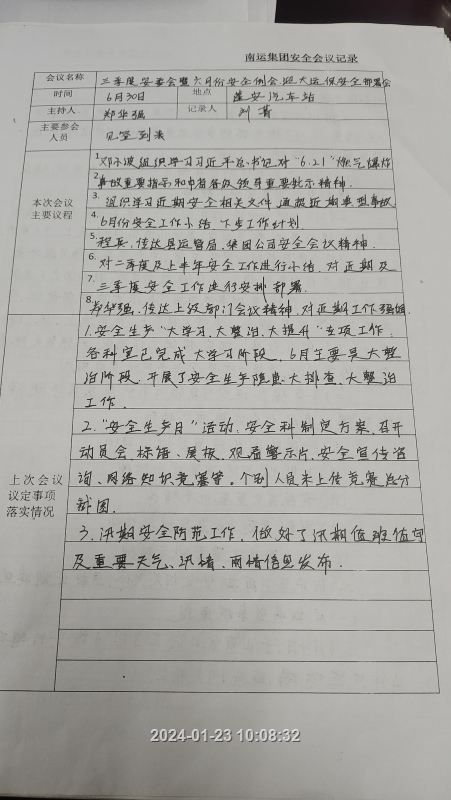 南运集团安全会议记录
会议名称 三季度安委会暨六月份安全例会、迎大运保安全部署会
时间 6月30日 地点 蓬安汽车站
主持人 郑华强 记录人 刘
主要参会人员 见签到表
本次会议主要议程
1.邓小波组织学习习近平总书记对“6.21”燃气爆炸
2.事故重要指示和中省各级领导重要批示精神.
3.组织学习近期安全相关文件 通报近期典型事故
4.6月份安全工作小结、下步工作计划.
5.程兵,传达县运管局、集团公司安全会议精神.
6.对二季度及上半年安全工作进行小结、对近期及
7.三季度安全工作进行安排部署.
8.郑华强,传达上级部门会议精神,对近期工作强调
上次会议议定事项落实情况
1.安全生产“大学习、大整治、大提升”专项工作,
各科室已完成大学习阶段,6月主要是大整
治阶段,开展了安全生产隐患大排查、大整治
工作.
2.“安全生产月”活动、安全科制定方案、召开
动员会、标语、展板、观看警示片、安全宣传咨
询、网络知识竞赛等。个别人员未上传竞赛总分
截图.
3.汛期安全防范工作,做好了汛期值班值守
及重要天气、汛情、雨情信息发布.
2024-01-23 10:08:32